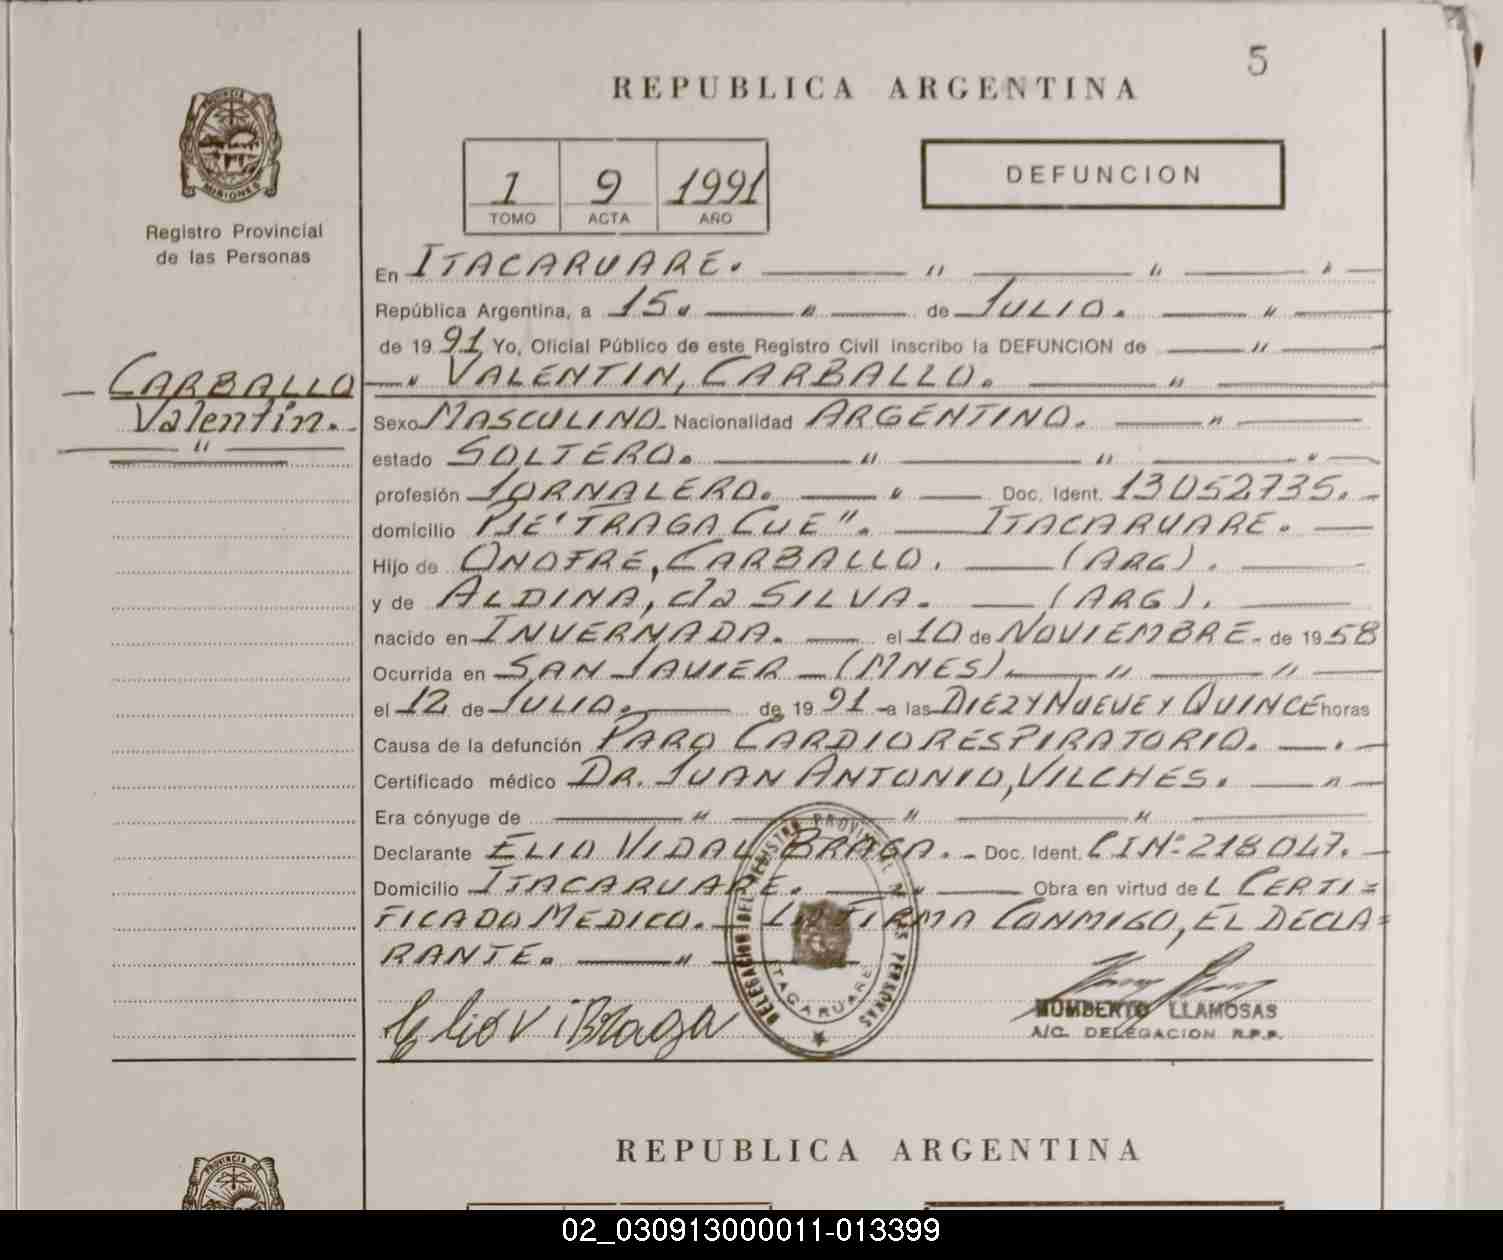 5
REPUBLICA ARGENTINA
PROVINCIA DE
MISIONES
Registro Provincial
de las Personas
1 9 1991
TOMO ACTA AÑO
DEFUNCION
En ITACARUARE. " " "
República Argentina, a 15. " de JULIO. "
de 1991 Yo, Oficial Público de este Registro Civil inscribo la DEFUNCION de "
— CARBALLO
Valentin.
"
" VALENTIN, CARBALLO. "
Sexo MASCULINO. Nacionalidad ARGENTINO. "
estado SOLTERO. " " "
profesión JORNALERO. " Doc. Ident. 13052735.
domicilio PJE "TRAGA CUE". ITACARUARE.
Hijo de ONOFRE, CARBALLO. (ARG).
y de ALDINA, da SILVA. (ARG).
nacido en INVERNADA. el 10 de NOVIEMBRE. de 1958
Ocurrida en SAN JAVIER — (MNES). " "
el 12 de JULIO. de 1991 a las DIEZ Y NUEVE Y QUINCE horas
Causa de la defunción PARO CARDIORESPIRATORIO.
Certificado médico DR. JUAN ANTONIO, VILCHES. "
Era cónyuge de " " "
Declarante ELIO VIDAL BRAGA. Doc. Ident. CIN: 218047.
Domicilio ITACARUARE. " Obra en virtud de L CERTI=
FICADO MEDICO. FIRMA CONMIGO, EL DECLA=
RANTE. "
DELEGACION DEL REGISTRO PROVINCIAL DE LAS PERSONAS
ITACARUARE
Elio V. Braga
HUMBERTO LLAMOSAS
A/C. DELEGACION R.P.P.
REPUBLICA ARGENTINA
PROVINCIA DE
02_030913000011-013399